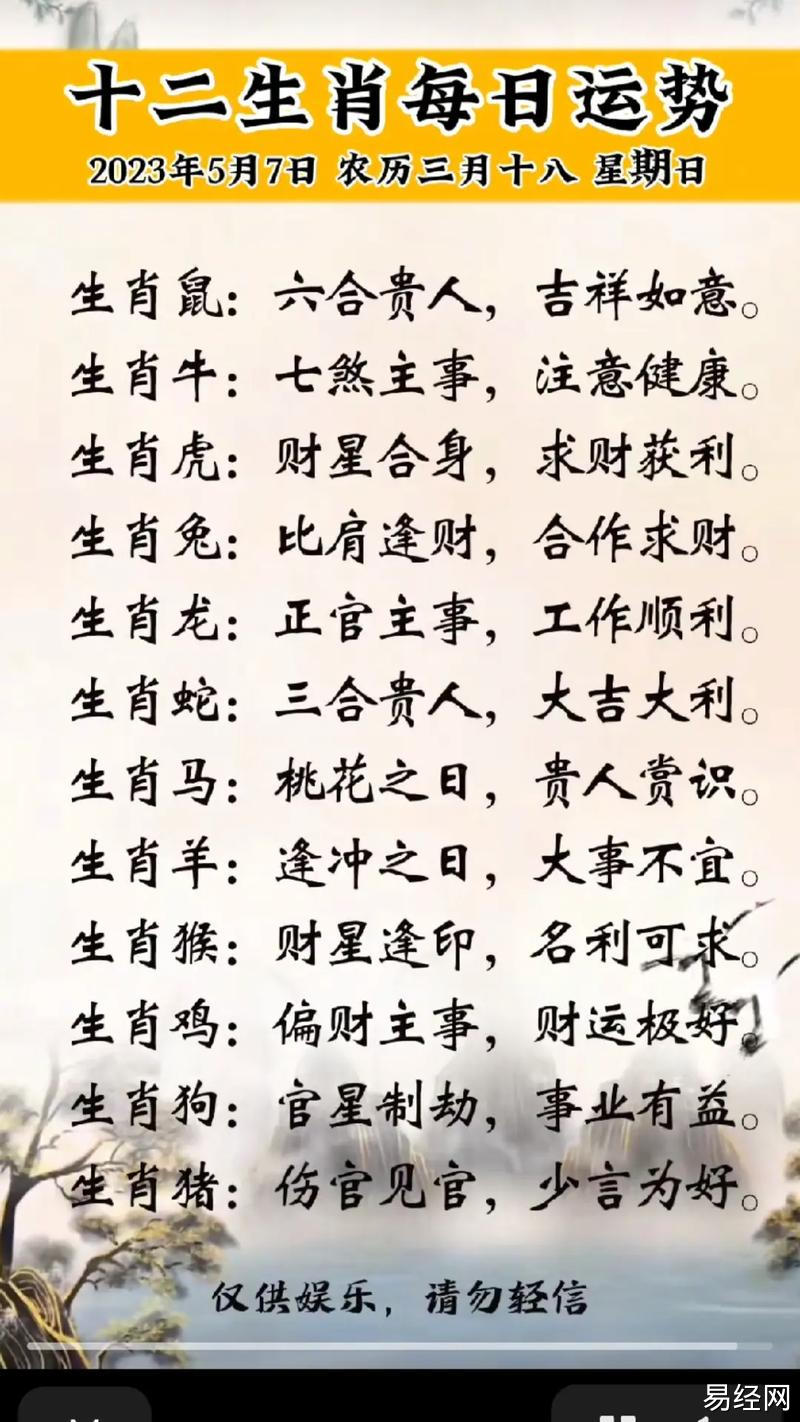 十二生肖每日运势
2023年5月7日 农历三月十八 星期日
生肖鼠：六合贵人，吉祥如意。
生肖牛：七煞主事，注意健康。
生肖虎：财星合身，求财获利。
生肖兔：比肩逢财，合作求财。
生肖龙：正官主事，工作顺利。
生肖蛇：三合贵人，大吉大利。
生肖马：桃花之日，贵人赏识。
生肖羊：逢冲之日，大事不宜。
生肖猴：财星逢印，名利可求。
生肖鸡：偏财主事，财运极好。
生肖狗：官星制劫，事业有益。
生肖猪：伤官见官，少言为好。
仅供娱乐，请勿轻信
易经网